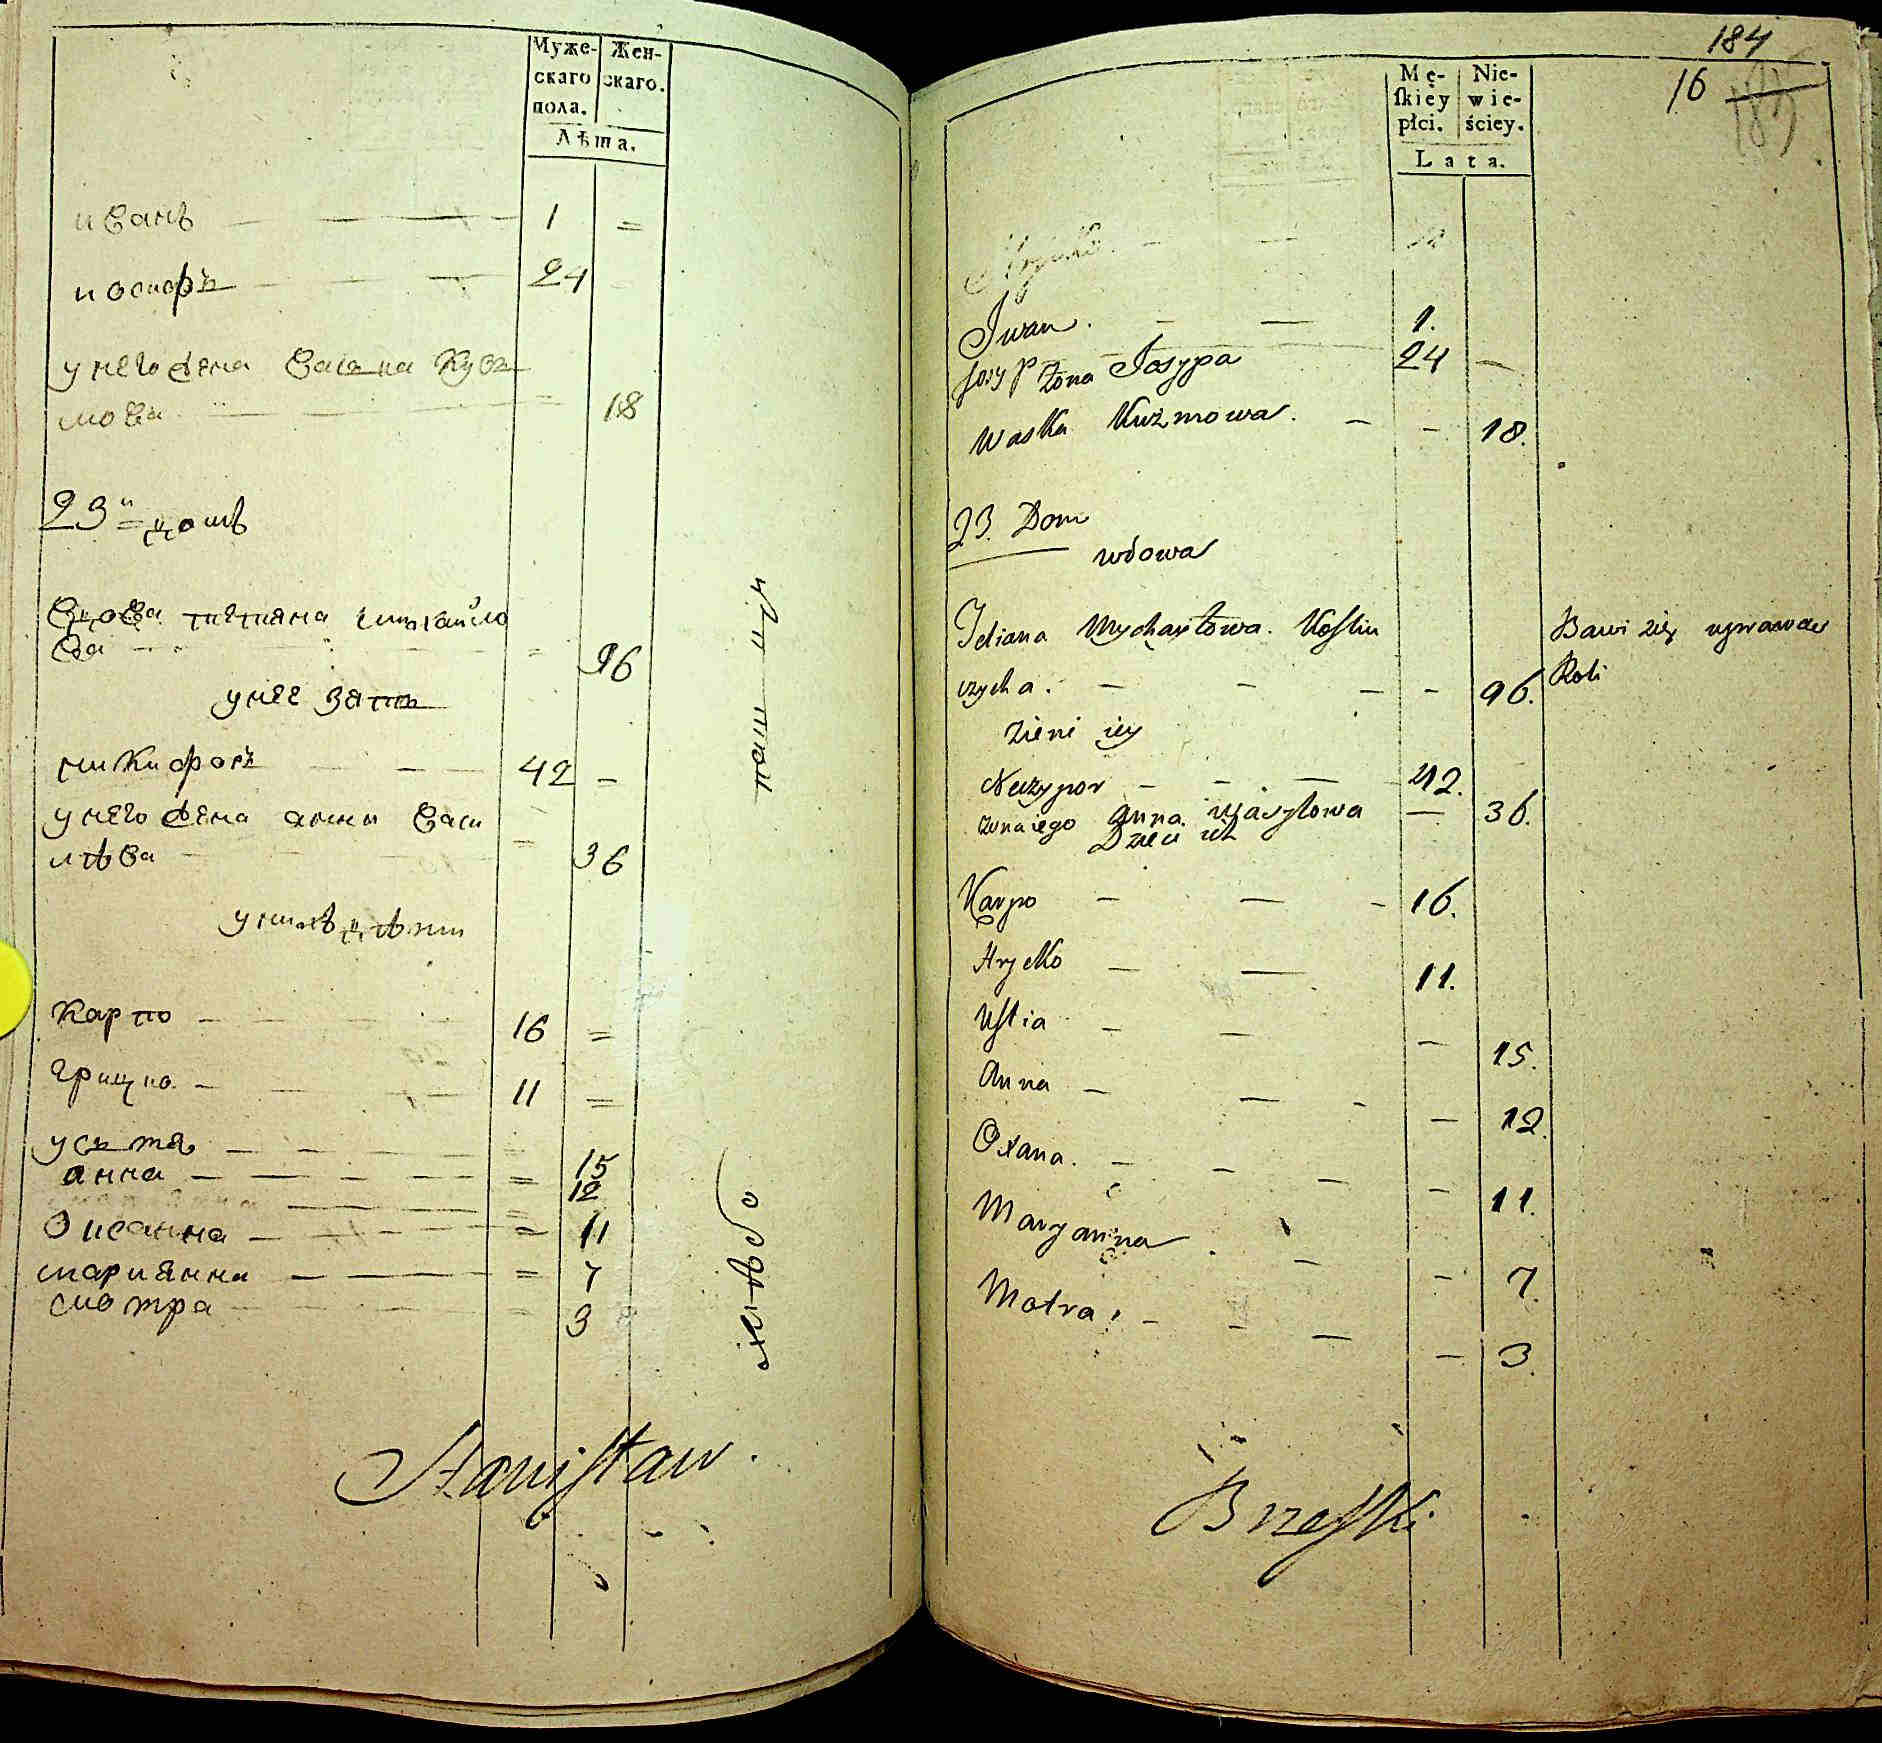 Муже-
скаго
пола.
Жен-
скаго.
Лѣта.
иванъ 1 =
иосифъ 24
у него жена васка Куз
мова 18
23й = домъ
вдова тетяна михайло
ва 96
у нее зять
никифоръ 42 =
у него жена анна васи
лѣва 36
у нихъ дѣти
карпо 16 =
грицко 11 =
устя = 15
анна = 12
оксанна = 11
марианна = 7
мотра 3
Stanisław
184
16
Mę-
skiey
płci.
Nie-
wie-
ściey.
Lata.
Iwan. 1.
Josyp 24
żona Josypa
Waska Kuźmowa. 18.
23. Dom
wdowa
Tetiana Mychayłowa. Kostiu
czycha. 96.
Bawi się uprawą
Roli
Zięć iey
Neczypor 42.
żona iego Anna Wasylowa 36.
Dzieci ich
Karpo 16.
Hryćko 11.
Ustia 15.
Anna 12.
Oxana. 11.
Maryanna 7.
Motra. 3.
Brzeski